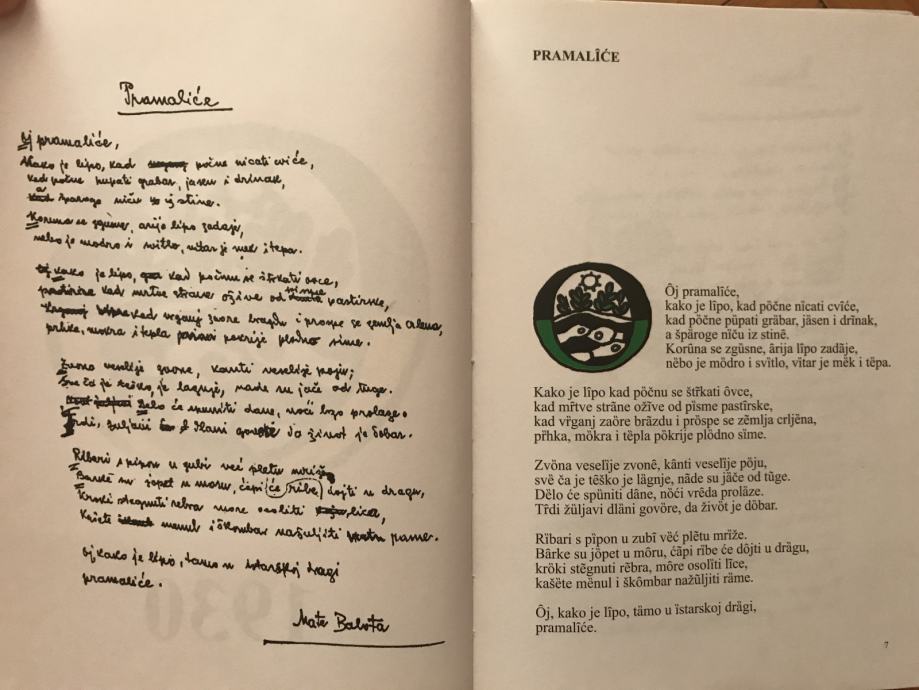 Pramaliće
Oj pramaliće,
kako je lipo, kad počne nicati cviće,
kad počne pupati grabar, jasen i drinak,
a šparoge niču iz stine.
Koruna se zgusne, arija lipo zadaje,
nebo je modro i svitlo, vitar je mek i tepa.
kako je lipo, kad počnu se štrkati ovce,
kad mrtve strane ožive od pisme pastirske,
kad vrganj zaore brazdu i prospe se zemlja crlena,
prhka, mokra i tepla pokrije plodno sime.
Zvona veselije zvone, kanti veselije poju;
sve ča je teško, je lagnje, nade su jače od tuge.
Delo će spuniti dane, noći brzo prolaze.
Trdi, žuljavi dlani govore da život je dobar.
Ribari s pipon u zubi već pletu mriže.
Barke su jopet u moru, ćapi će ribe dojti u dragu,
kroki stegnuti rebra more osoliti lica,
kašete menul i škombar nažuljiti rame.
Oj kako je lipo, tamo u istarskoj dragi
pramaliće.
Mate Balota
PRAMALÎĆE
Ôj pramalîće,
kako je lîpo, kad pȍčne nȉcati cvîće,
kad pȍčne pȕpati grȁbar, jȁsen i drȉnak,
a špȁroge nȉču iz stinê.
Korûna se zgȕsne, ârija lîpo zadâje,
nȅbo je mȍdro i svȉtlo, vȉtar je mȅk i tȅpa.
Kako je lîpo kad pȍčnu se štȑkati ôvce,
kad mȑtve strâne ožîve od pȉsme pastîrske,
kad vȑganj zaȍre brȁzdu i prȍspe se zȅmlja crljȅna,
pȑhka, mȍkra i tȅpla pȍkrije plȍdno sȉme.
Zvȍna veselȉje zvonê, kȁnti veselȉje pȍju,
svȅ ča je tȅško je lȁgnje, nȁde su jȁče od tȕge.
Dȅlo će spȕniti dâne, nȍći vrêda prolȁze.
Tȓdi žȕljavi dlȁni govȍre, da živȍt je dȍbar.
Rȉbari s pȉpon u zubȋ vȅć plȇtu mrȉže.
Bârke su jȍpet u môru, ćȃpi rȉbe će dȏjti u drȁgu,
krȍki stȅgnuti rȅbra, môre osolȉti lȉce,
kašȅte mȅnul i škômbar nažȕljiti rȁme.
Ôj, kako je lîpo, tȁmo u ȉstarskoj drȁgi,
pramalîće.
7
1930